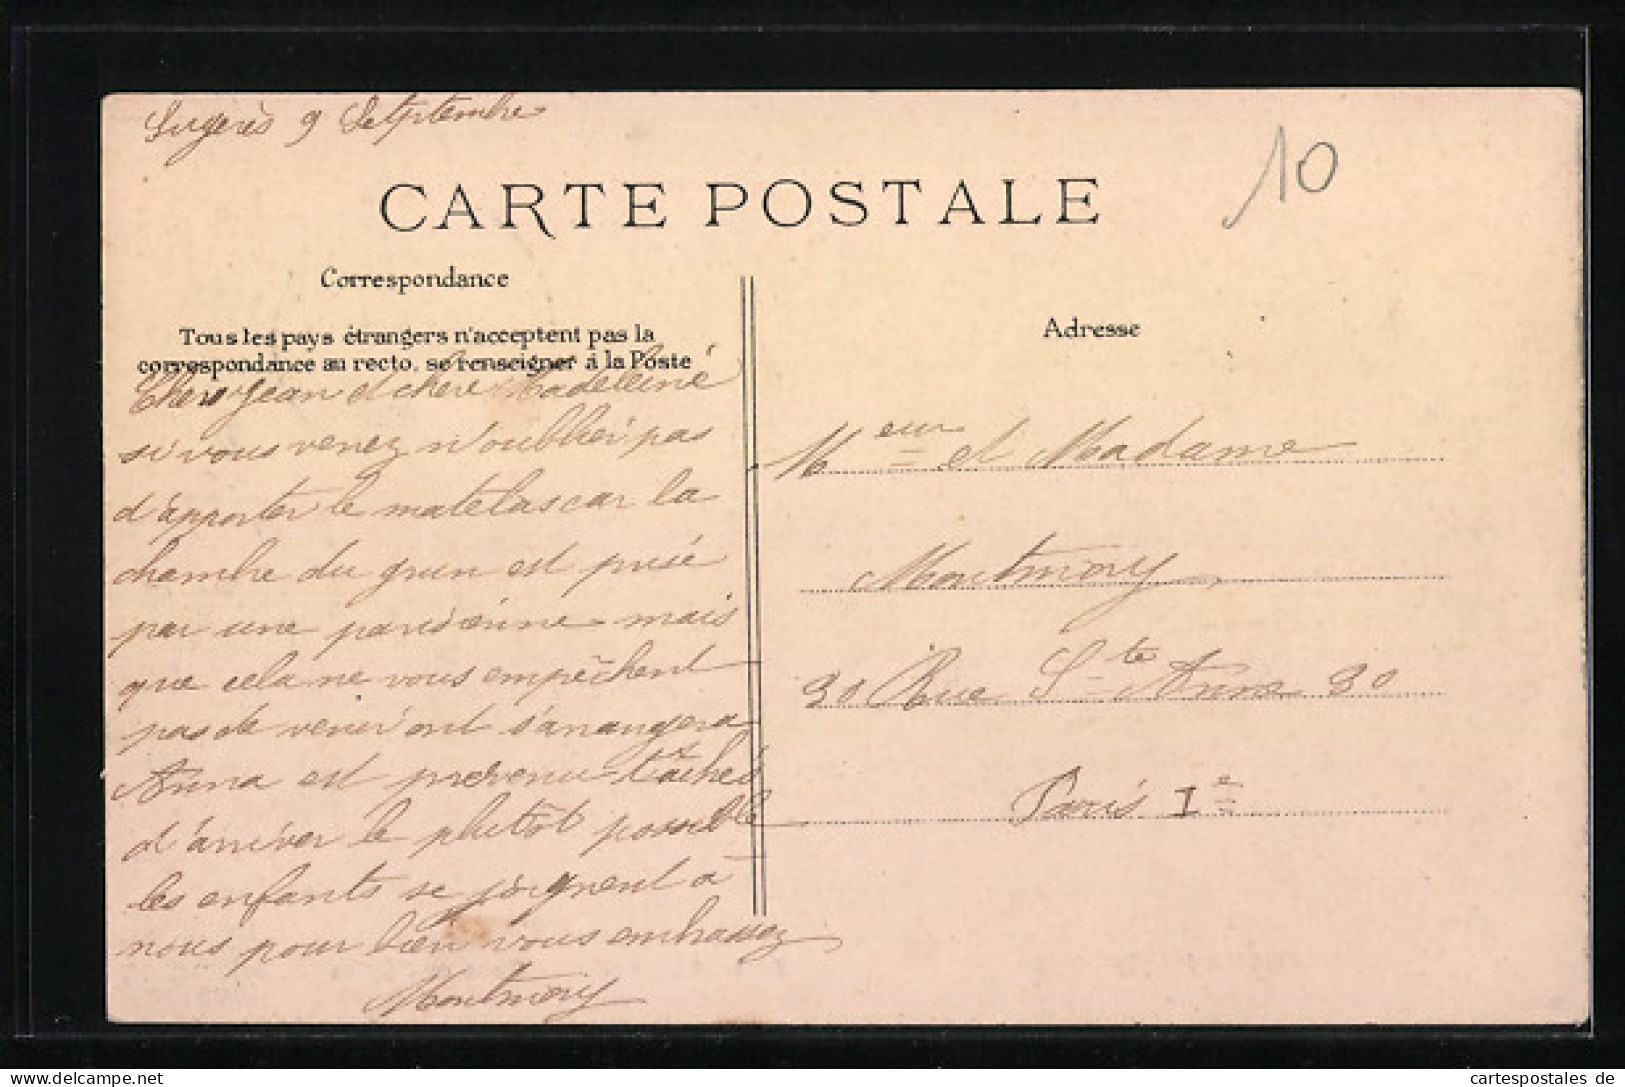 Sugères 9 Septembre
10
CARTE POSTALE
Correspondance
Tous les pays étrangers n'acceptent pas la
correspondance au recto, se renseigner à la Poste
Adresse
Cher Jean et chère Madeleine
si vous venez n'oublier pas
d'apporter le matelas car la
chambre du est prise
par une parisienne mais
que cela ne vous empêchent
pas de venir ont s'arrangera
Anna est prévenu tâchez
d'arriver le plutôt possible
les enfants se joignent à
nous pour bien vous embrassez
Montmory
Meur et Madame
Montmory
30 Rue Ste Anne 30
Paris Ie
Delcampe.net
cartespostales de